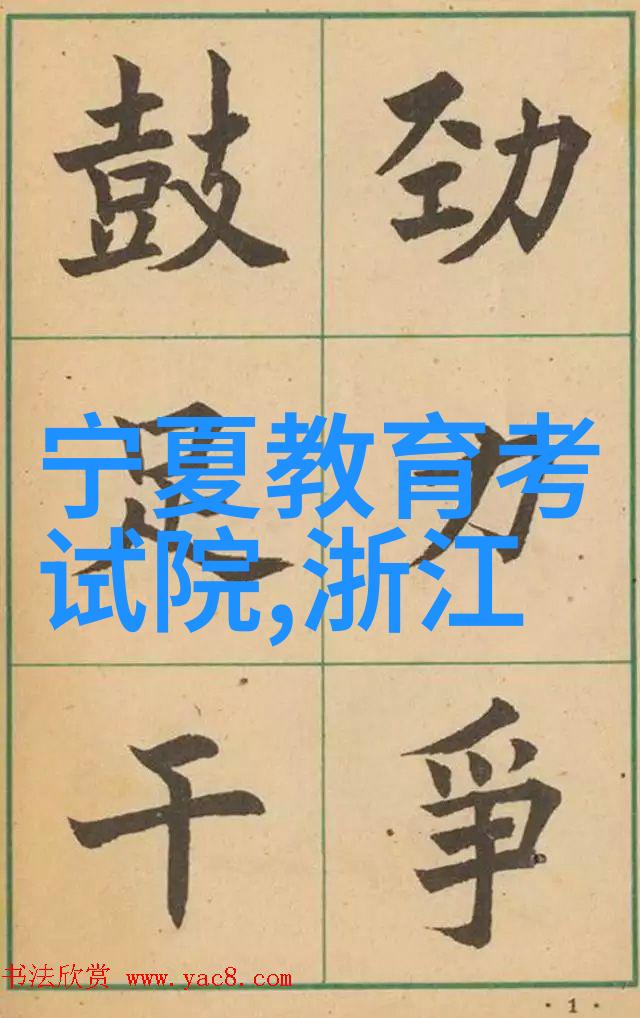 鼓足干
劲力爭
宁夏教育考
试院,浙江
书法欣赏 www.yac8.com
·1·